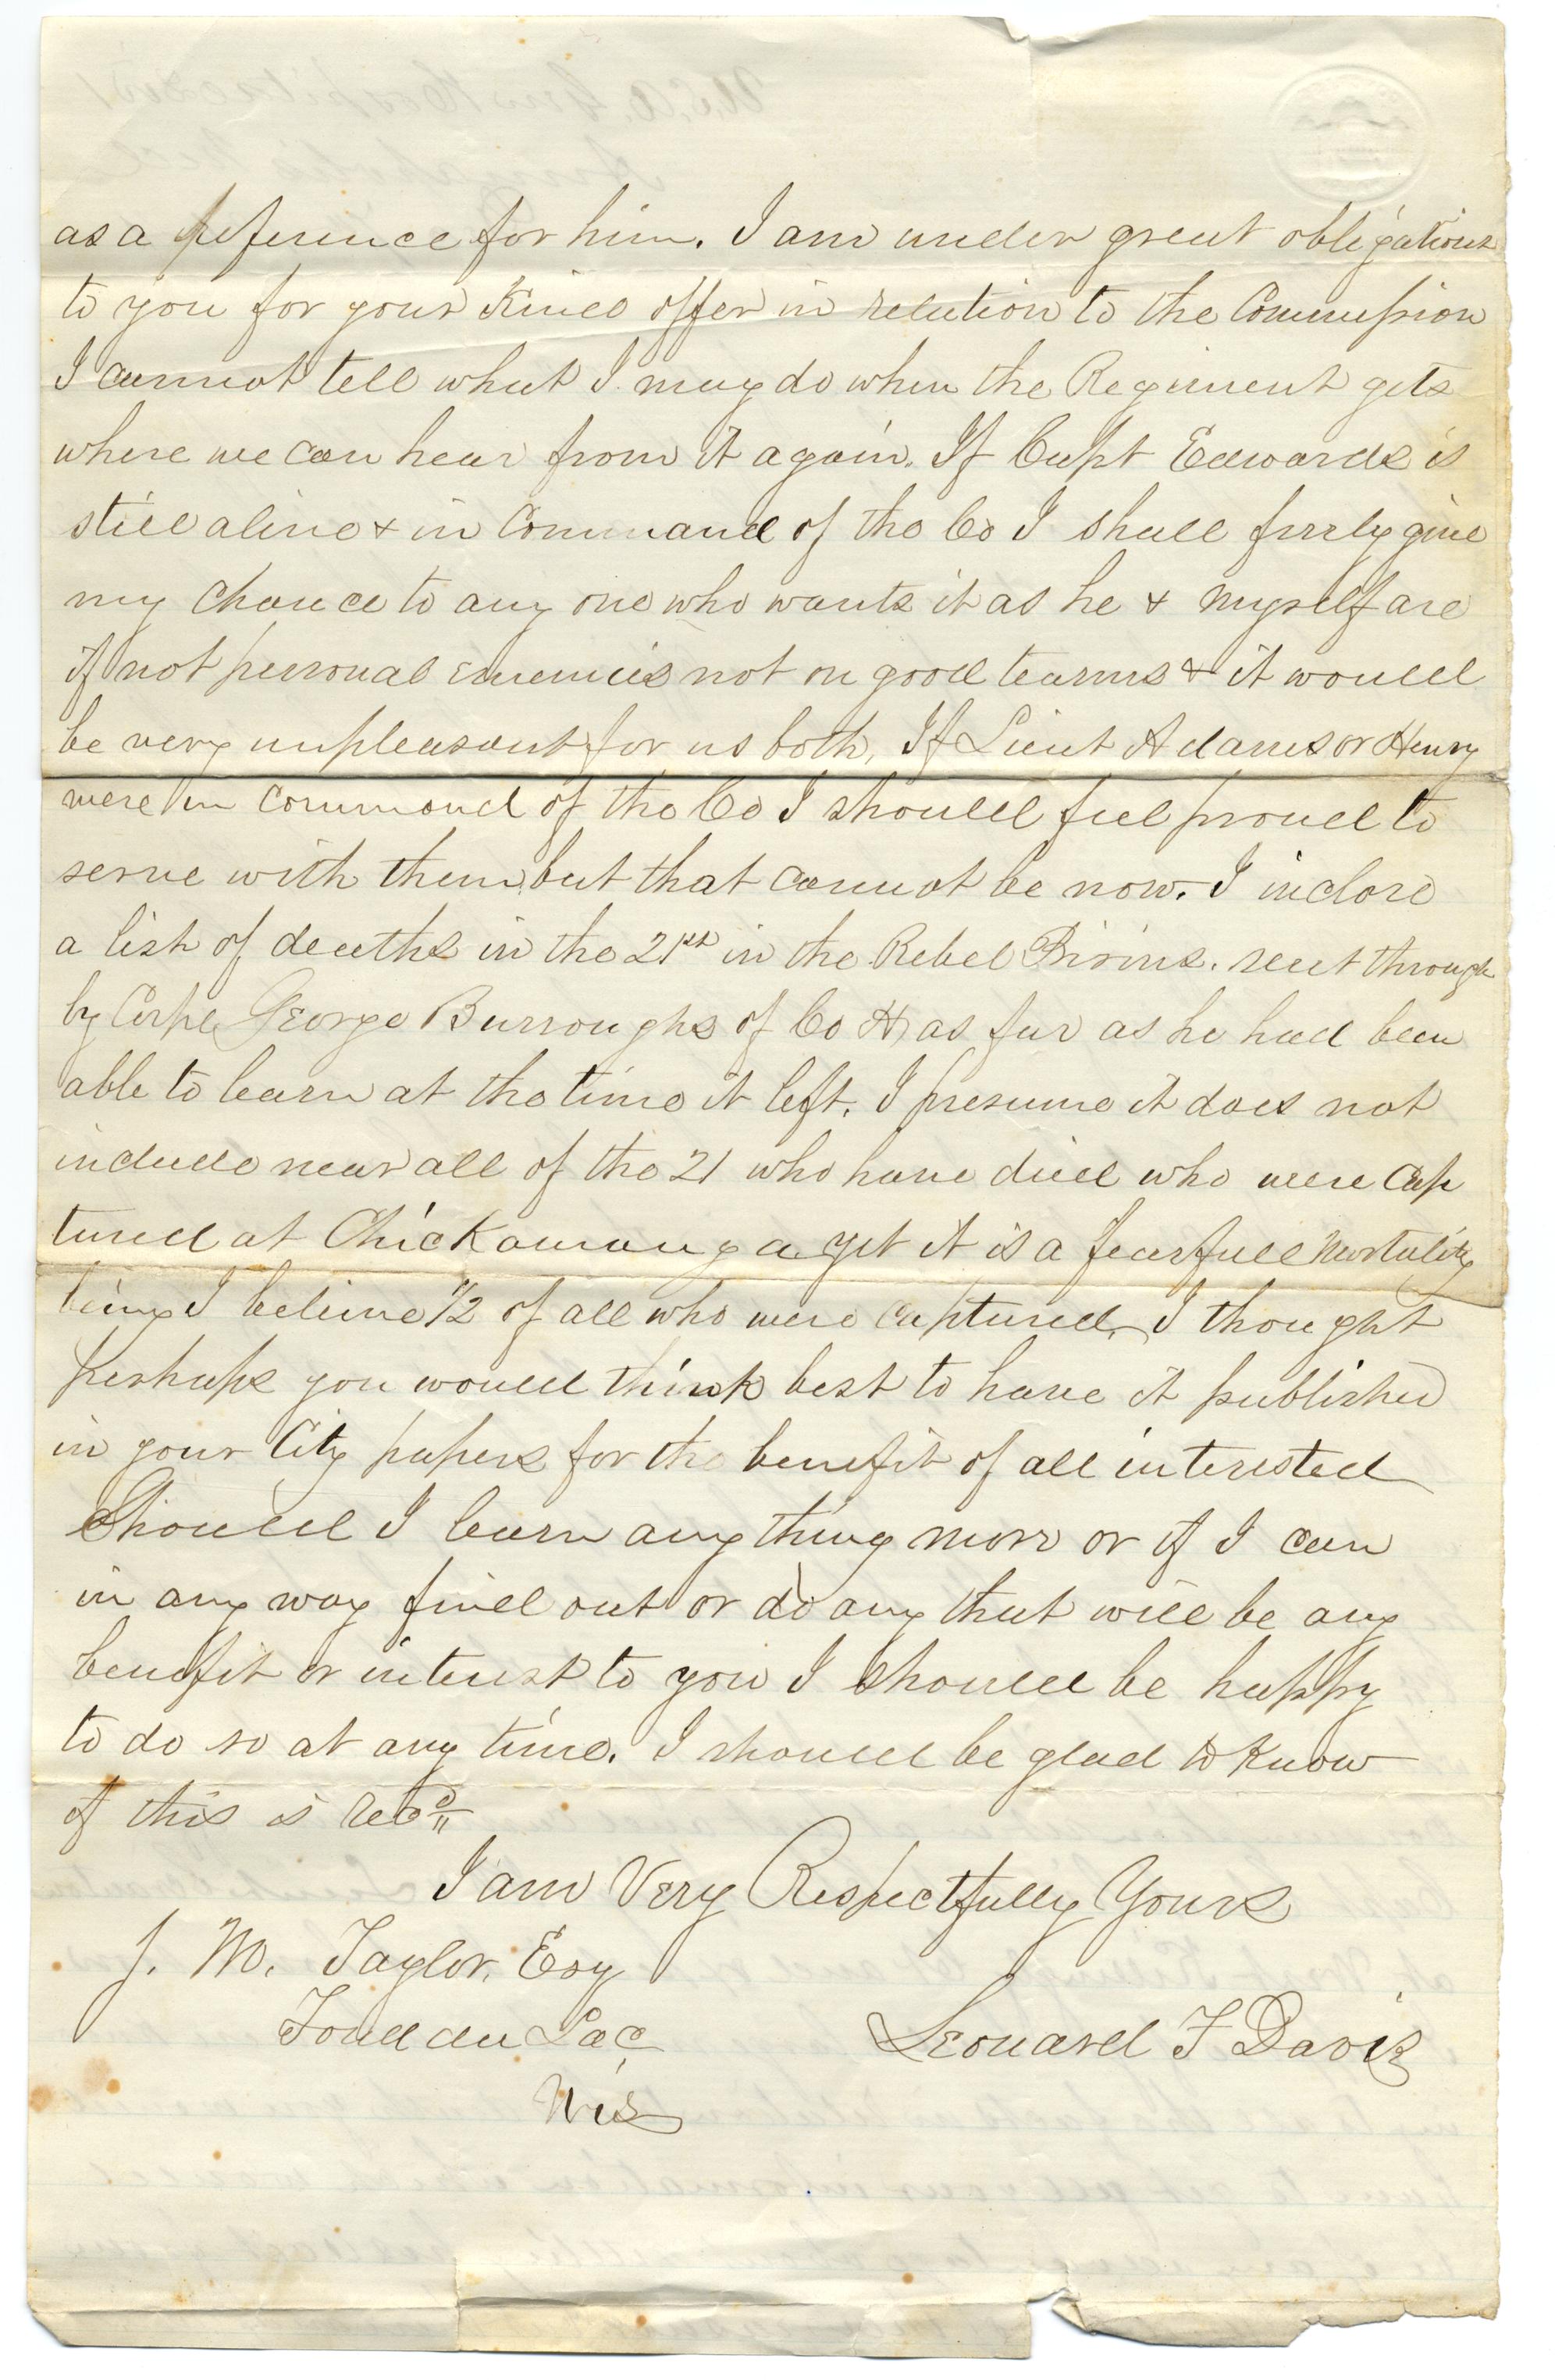 as a reference for him. I am under great obligations
to you for your Kind offer in relation to the Commission
I cannot tell what I may do when the Regiment gets
where we can hear from it again. If Capt Edwards is
still alive & in Command of the Co I shall freely give
my Chance to any one who wants it as he & myself are
if not personal enemies not on good tearms & it would
be very unpleasant for us both, If Lieut Adams or Henry
were in command of the Co I should feel proud to
serve with them but that cannot be now. I inclose
a list of deaths in the 21st in the Rebel Prisins. sent through
by Corpl George Burroughs of Co H, as far as he had been
able to learn at the time it left. I presume it does not
include near all of the 21 who have died who were Cap
tured at Chickamauga yet it is a fearfull Mortality
being I believe 1/2 of all who were captured, I thought
perhaps you would think best to have it published
in your City papers for the benefit of all interested
Should I learn any thing more or if I can
in any way find out or do any that will be any
benefit or interest to you I should be happy
to do so at any time. I should be glad to know
if this is Recd
I am Very Respectfully Yours
J. M. Taylor, Esq
Fond du Lac
Leonard F Davis
Wis